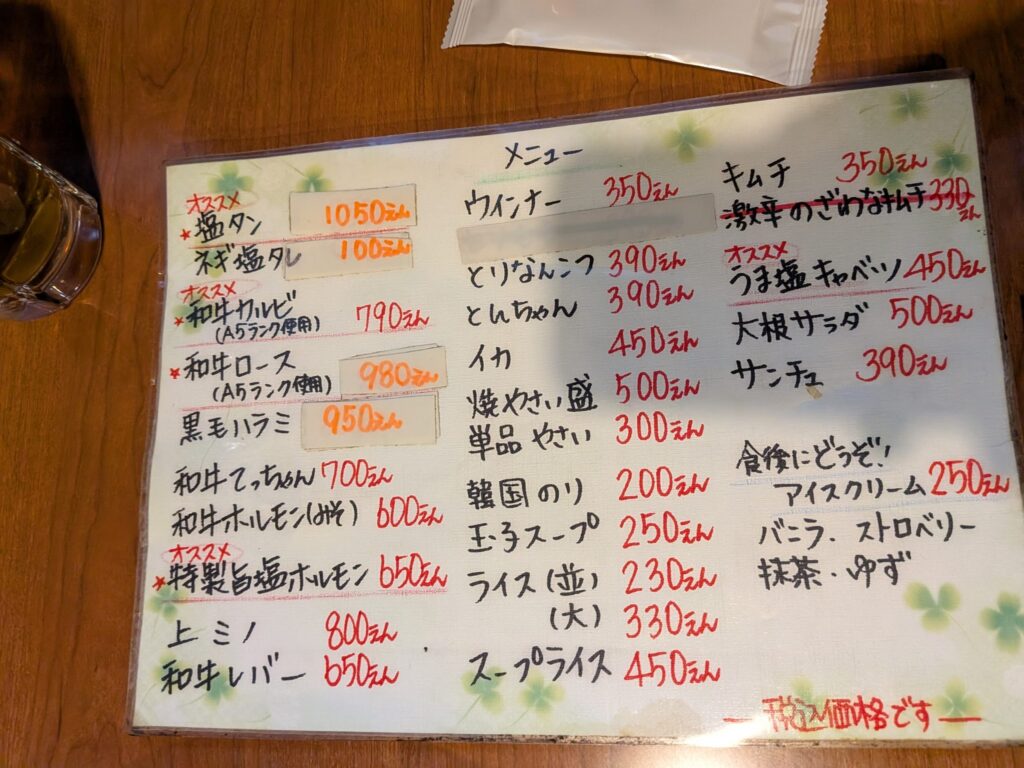 メニュー
オススメ
★塩タン 1050えん
ネギ塩タレ 100えん
オススメ
★和牛カルビ 790えん
(A5ランク使用)
★和牛ロース 980えん
(A5ランク使用)
黒毛ハラミ 950えん
和牛てっちゃん 700えん
和牛ホルモン(みそ) 600えん
オススメ
★特製旨塩ホルモン 650えん
上ミノ 800えん
和牛レバー 650えん
ウインナー 350えん
とりなんこつ 390えん
とんちゃん 390えん
イカ 450えん
焼やさい盛 500えん
単品やさい 300えん
韓国のり 200えん
玉子スープ 250えん
ライス(並) 230えん
(大) 330えん
スープライス 450えん
キムチ 350えん
激辛のざわなキムチ 330えん
オススメ
うま塩キャベツ 450えん
大根サラダ 500えん
サンチュ 390えん
食後にどうぞ!
アイスクリーム 250えん
バニラ.ストロベリー
抹茶.ゆず
―税込価格です―